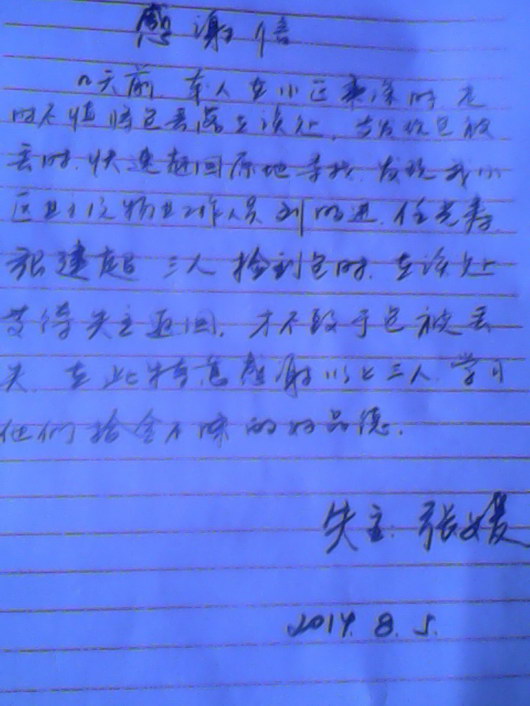 感谢信
几天前,本人在小区乘凉时无
时不慎将包丢落在该处,当发现包被
丢时,快速赶回原地寻找,发现我小
区 物业工作人员刘明进,任光寿,
张建超 三人捡到包时,在该处
等待失主返回,才不致于包被丢
失,在此特意感谢以上三人,学习
他们拾金不昧的好品德.
失主:张媛
2014.8.5.